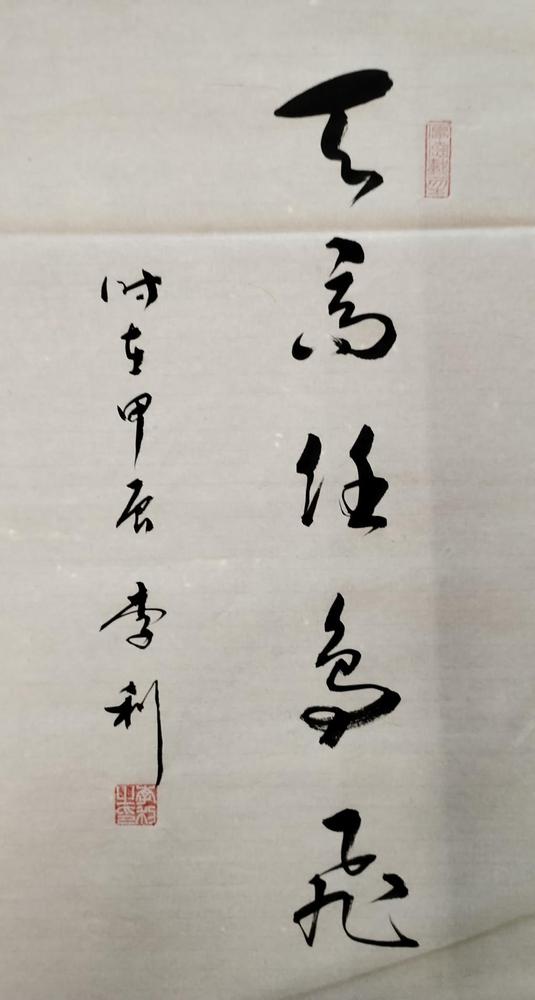 天高任鸟飞
时在甲辰 李利